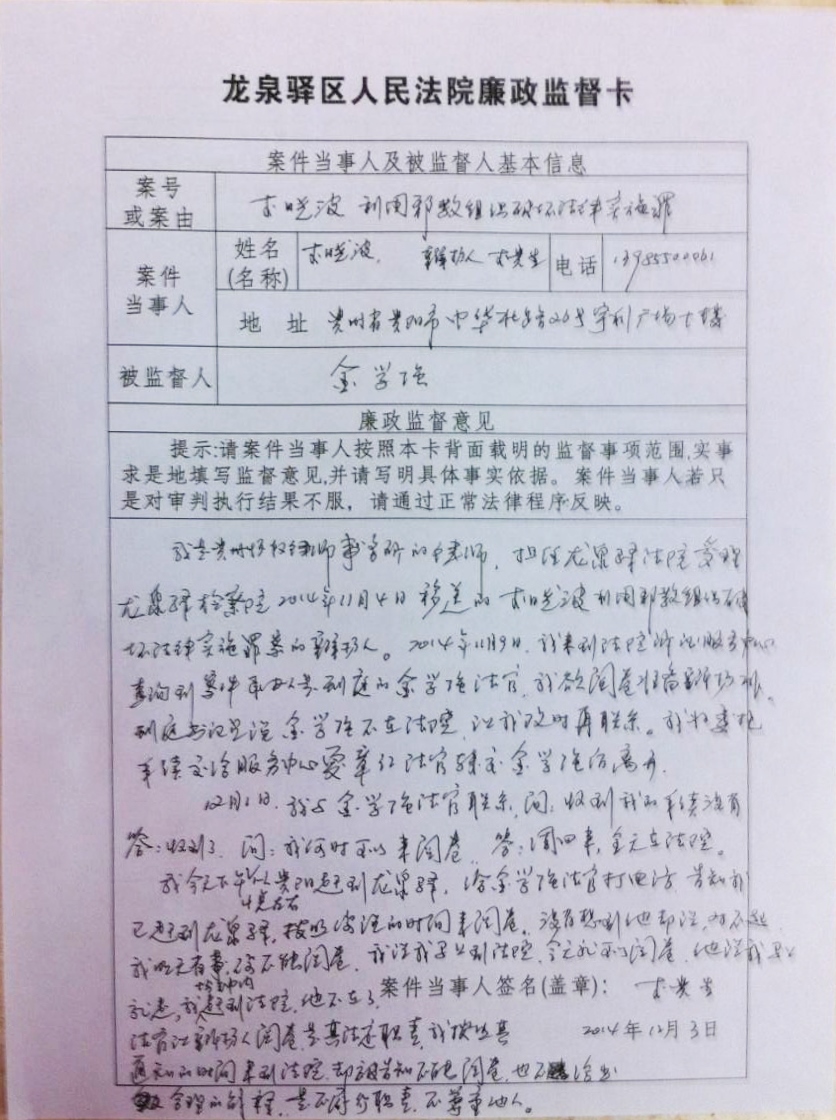 龙泉驿区人民法院廉政监督卡
案件当事人及被监督人基本信息
案号
或案由
利用邪教组织破坏法律实施罪
案件
当事人
姓名
(名称)
晓波 辩护人
电话
地 址
贵州省贵阳市中华北路
被监督人
金学强
廉政监督意见
提示:请案件当事人按照本卡背面载明的监督事项范围,实事
求是地填写监督意见,并请写明具体事实依据。案件当事人若只
是对审判执行结果不服，请通过正常法律程序反映。
我是贵州 律师事务所的 律师，担任龙泉驿法院受理
龙泉驿检察院2014年11月4日移送的 晓波利用邪教组织破
坏法律实施罪案的辩护人。2014年11月9日，我来到法院诉讼服务中心
查询到案件承办人是刑庭的金学强法官，我欲阅卷准备辩护，
刑庭书记员说金学强不在法院，让我改时再联系。我将委托
手续交给服务中心 法官转交金学强后离开。
12月1日，我与金学强法官联系，问：收到我的手续没有
答：收到了 问：我何时可以来阅卷 答：周四来，全天在法院。
我今天下午 从贵阳赶到龙泉驿，给金学强法官打电话 告知我
已赶到龙泉驿，按照 的时间来阅卷。没有想到他却说，对不起
我明天有事，不能阅卷，我说我马上到法院，今天就可以阅卷，他说我马上
就走，我赶到法院，他不在了
案件当事人签名(盖章)：
2014年12月3日
法官让辩护人阅卷是其法定职责，我按照其
通知的时间来到法院，却被告知不能阅卷，也不 给出
合理的解释，是不履行职责，不尊重他人。